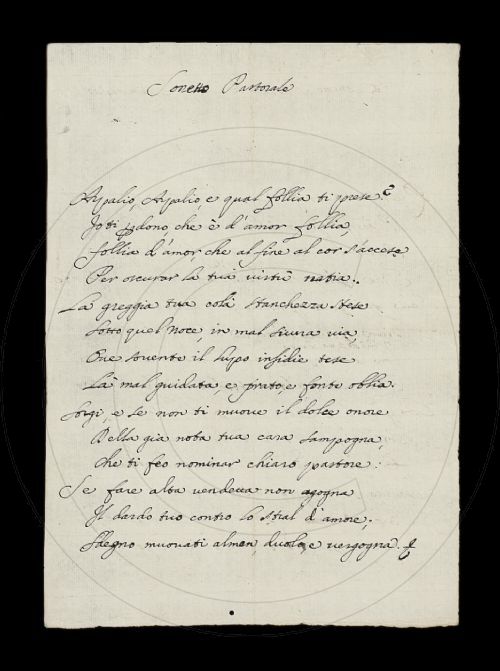 Sonetto Pastorale
Aspalio, Aspalio, e qual follia ti prese?
Io ti perdono, che è d'amor follia
follia d'amor che al fine al cor s'accese
Per oscurar la tua virtù natia.
La greggia tua colà stanchezza stese
Sotto quel Noce, in mal sicura via
Ove sovente il lupo insidie tese
Là mal guidata, e prato, e fonte obblia.
Sorgi, e se non ti muove il dolce onore
Della già nota tua cara sampogna,
Che ti feo nominar chiaro pastore:
Se fare alta vendetta non agogna
Il dardo tuo contro lo stral d'amore.
Sdegno muovati almen duolo, e vergogna.